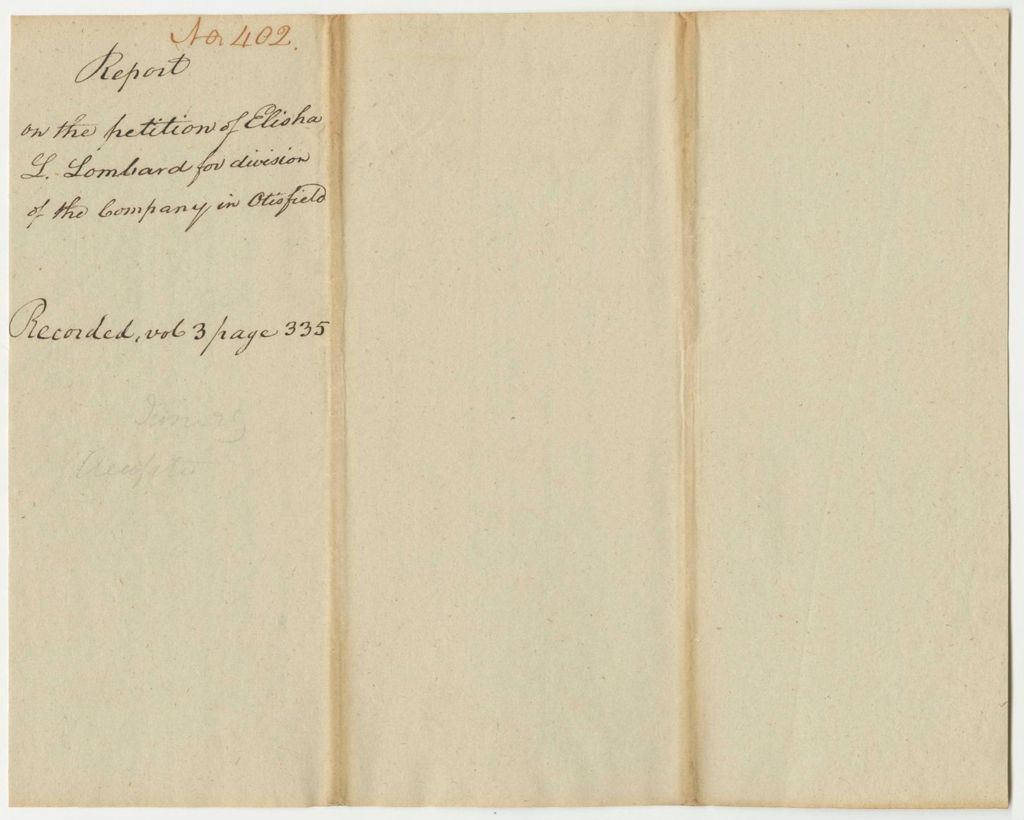 No 402.
Report
on the petition of Elisha
L. Lombard for division
of the Company in Otisfield
Recorded, vol 3 page 335